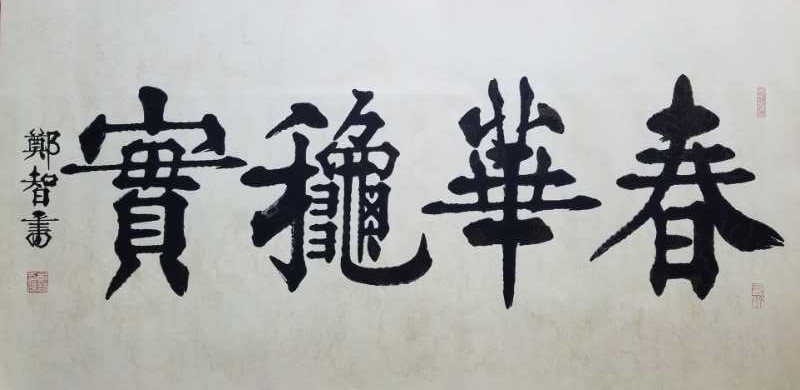 春華龝實
鄭智書